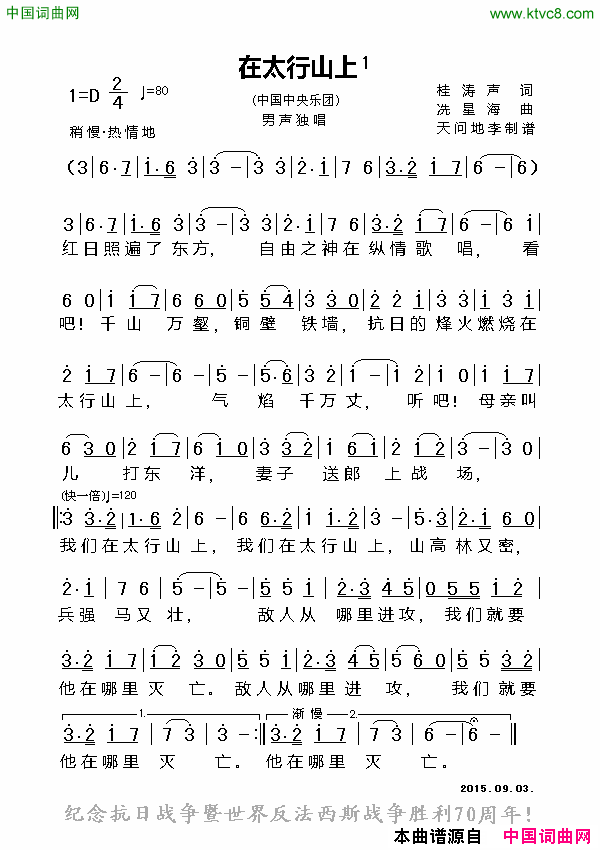 中国词曲网
www.ktvc8.com
在太行山上1
1=D 2/4 ♩=80
(中国中央乐团)
男声独唱
桂涛声 词
冼星海 曲
天问地李制谱
稍慢·热情地
(3|6·7|1·6 3|3 -|3 3|2·1|7 6|3·2 1 7|6 -|6 -)
3|6·7|1·6 3|3 -|3 3|2·1|7 6|3·2|1 7|6 -|6 1|
红日照遍了东方, 自由之神在纵情歌 唱, 看
6 0|1 1 7|6 6 0|5 5 4|3 3 0|2 2 1|3·2 3|1 2 3|
吧!千山 万壑,铜壁 铁墙,抗日的烽火燃烧在
2 1 7|6 -|6 -|5 -|5·6|3 5 1|1 -|1 2|1 0|1 2 1|
太行山上, 气 焰 千万丈, 听吧!母亲叫
6 3 0|2 1 7|6 1 6|3 3 2|1 6 1|2 1 7|3 -|3 0|
儿 打东 洋, 妻子 送郎 上战场,
(快一倍)♩=120
3 3·2|1·6 2|2 -|6 -|6 6·2|1·2 3|3 -|5·3|2·1 6|6 0|
我们在太行山上,我们在太行山上,山高林又密,
2·1|7 6|5 -|5 -|5 5 1|3·2 1|4·3 4|0 5 5|5 1 2|
兵强 马又 壮, 敌人从 哪里进攻,我们就要
3·2 1 7|1 2|3 0|5 5 1|2·3 4 5|5 6|0 5 5|5 1 2|
他在哪里灭 亡。敌人从哪里进 攻, 我们就要
1. 渐慢 2.
3·2 1 7|7 3|3 -:|3·2 1 7|7 3|6 -|6 -|
他在哪里灭 亡。 他在哪里灭 亡。
2015.09.03.
纪念抗日战争暨世界反法西斯战争胜利70周年!
本曲谱源自 中国词曲网